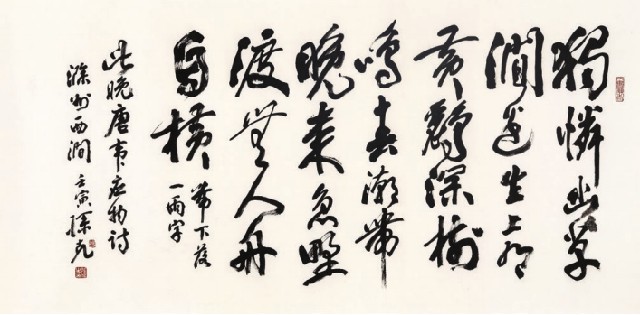 獨憐幽草
澗邊生上有
黃鸝深樹
鳴春潮帶
晚来急野
渡無人舟
自橫
帶下落
一雨字
此晚唐韦应物诗
滁州西澗 壬寅